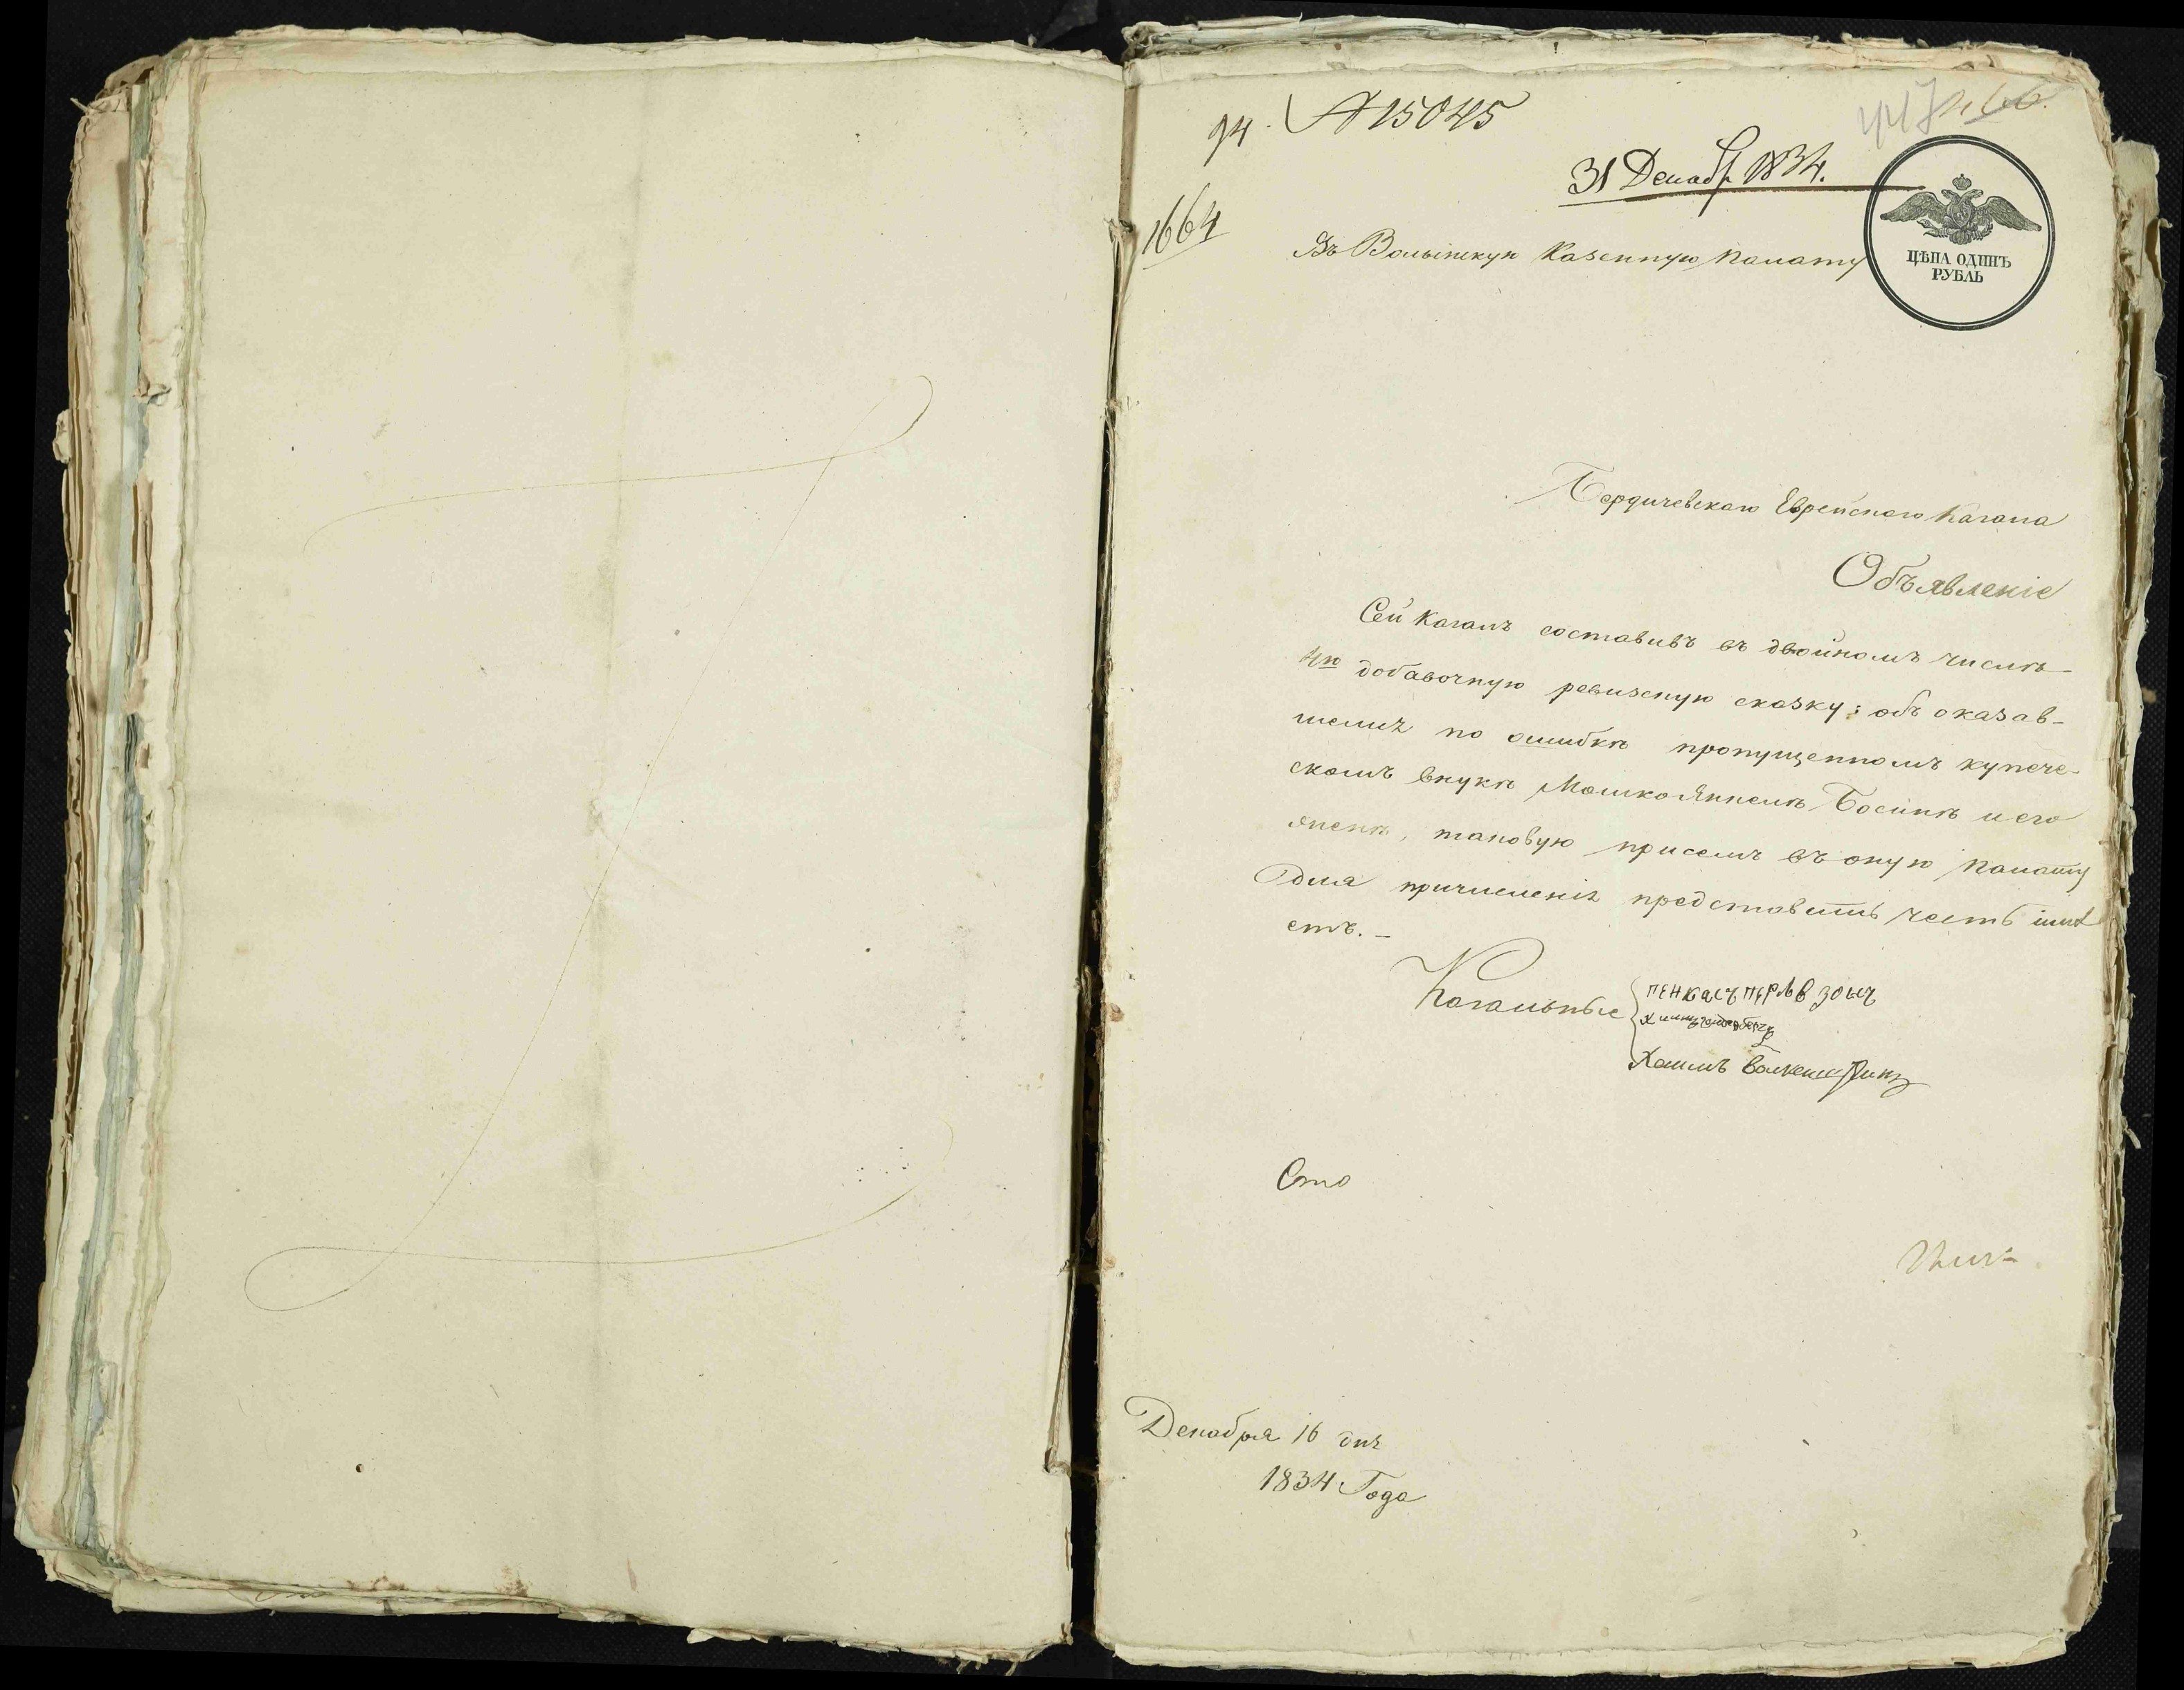 94. № 15045
447
31 Декабр 1834.
1664
Въ Волынскую Казенную Палату
ЦѢНА ОДИНЪ
РУБЛЬ
Бердичевскаго Еврейскаго Кагала
Объявленіе
Сей Кагалъ составивъ въ двойномъ числѣ
4ю добавочную ревизскую сказку: объ оказав-
шемся по ошибкѣ пропущенномъ купече-
скомъ внукѣ Мошко Янкелѣ и его
женѣ, таковую присемъ въ оную Палату
для причисленія представить честь имѣ
етъ. –
Кагальные
Хаимъ
Сто
Декабря 16 дня
1834 Года